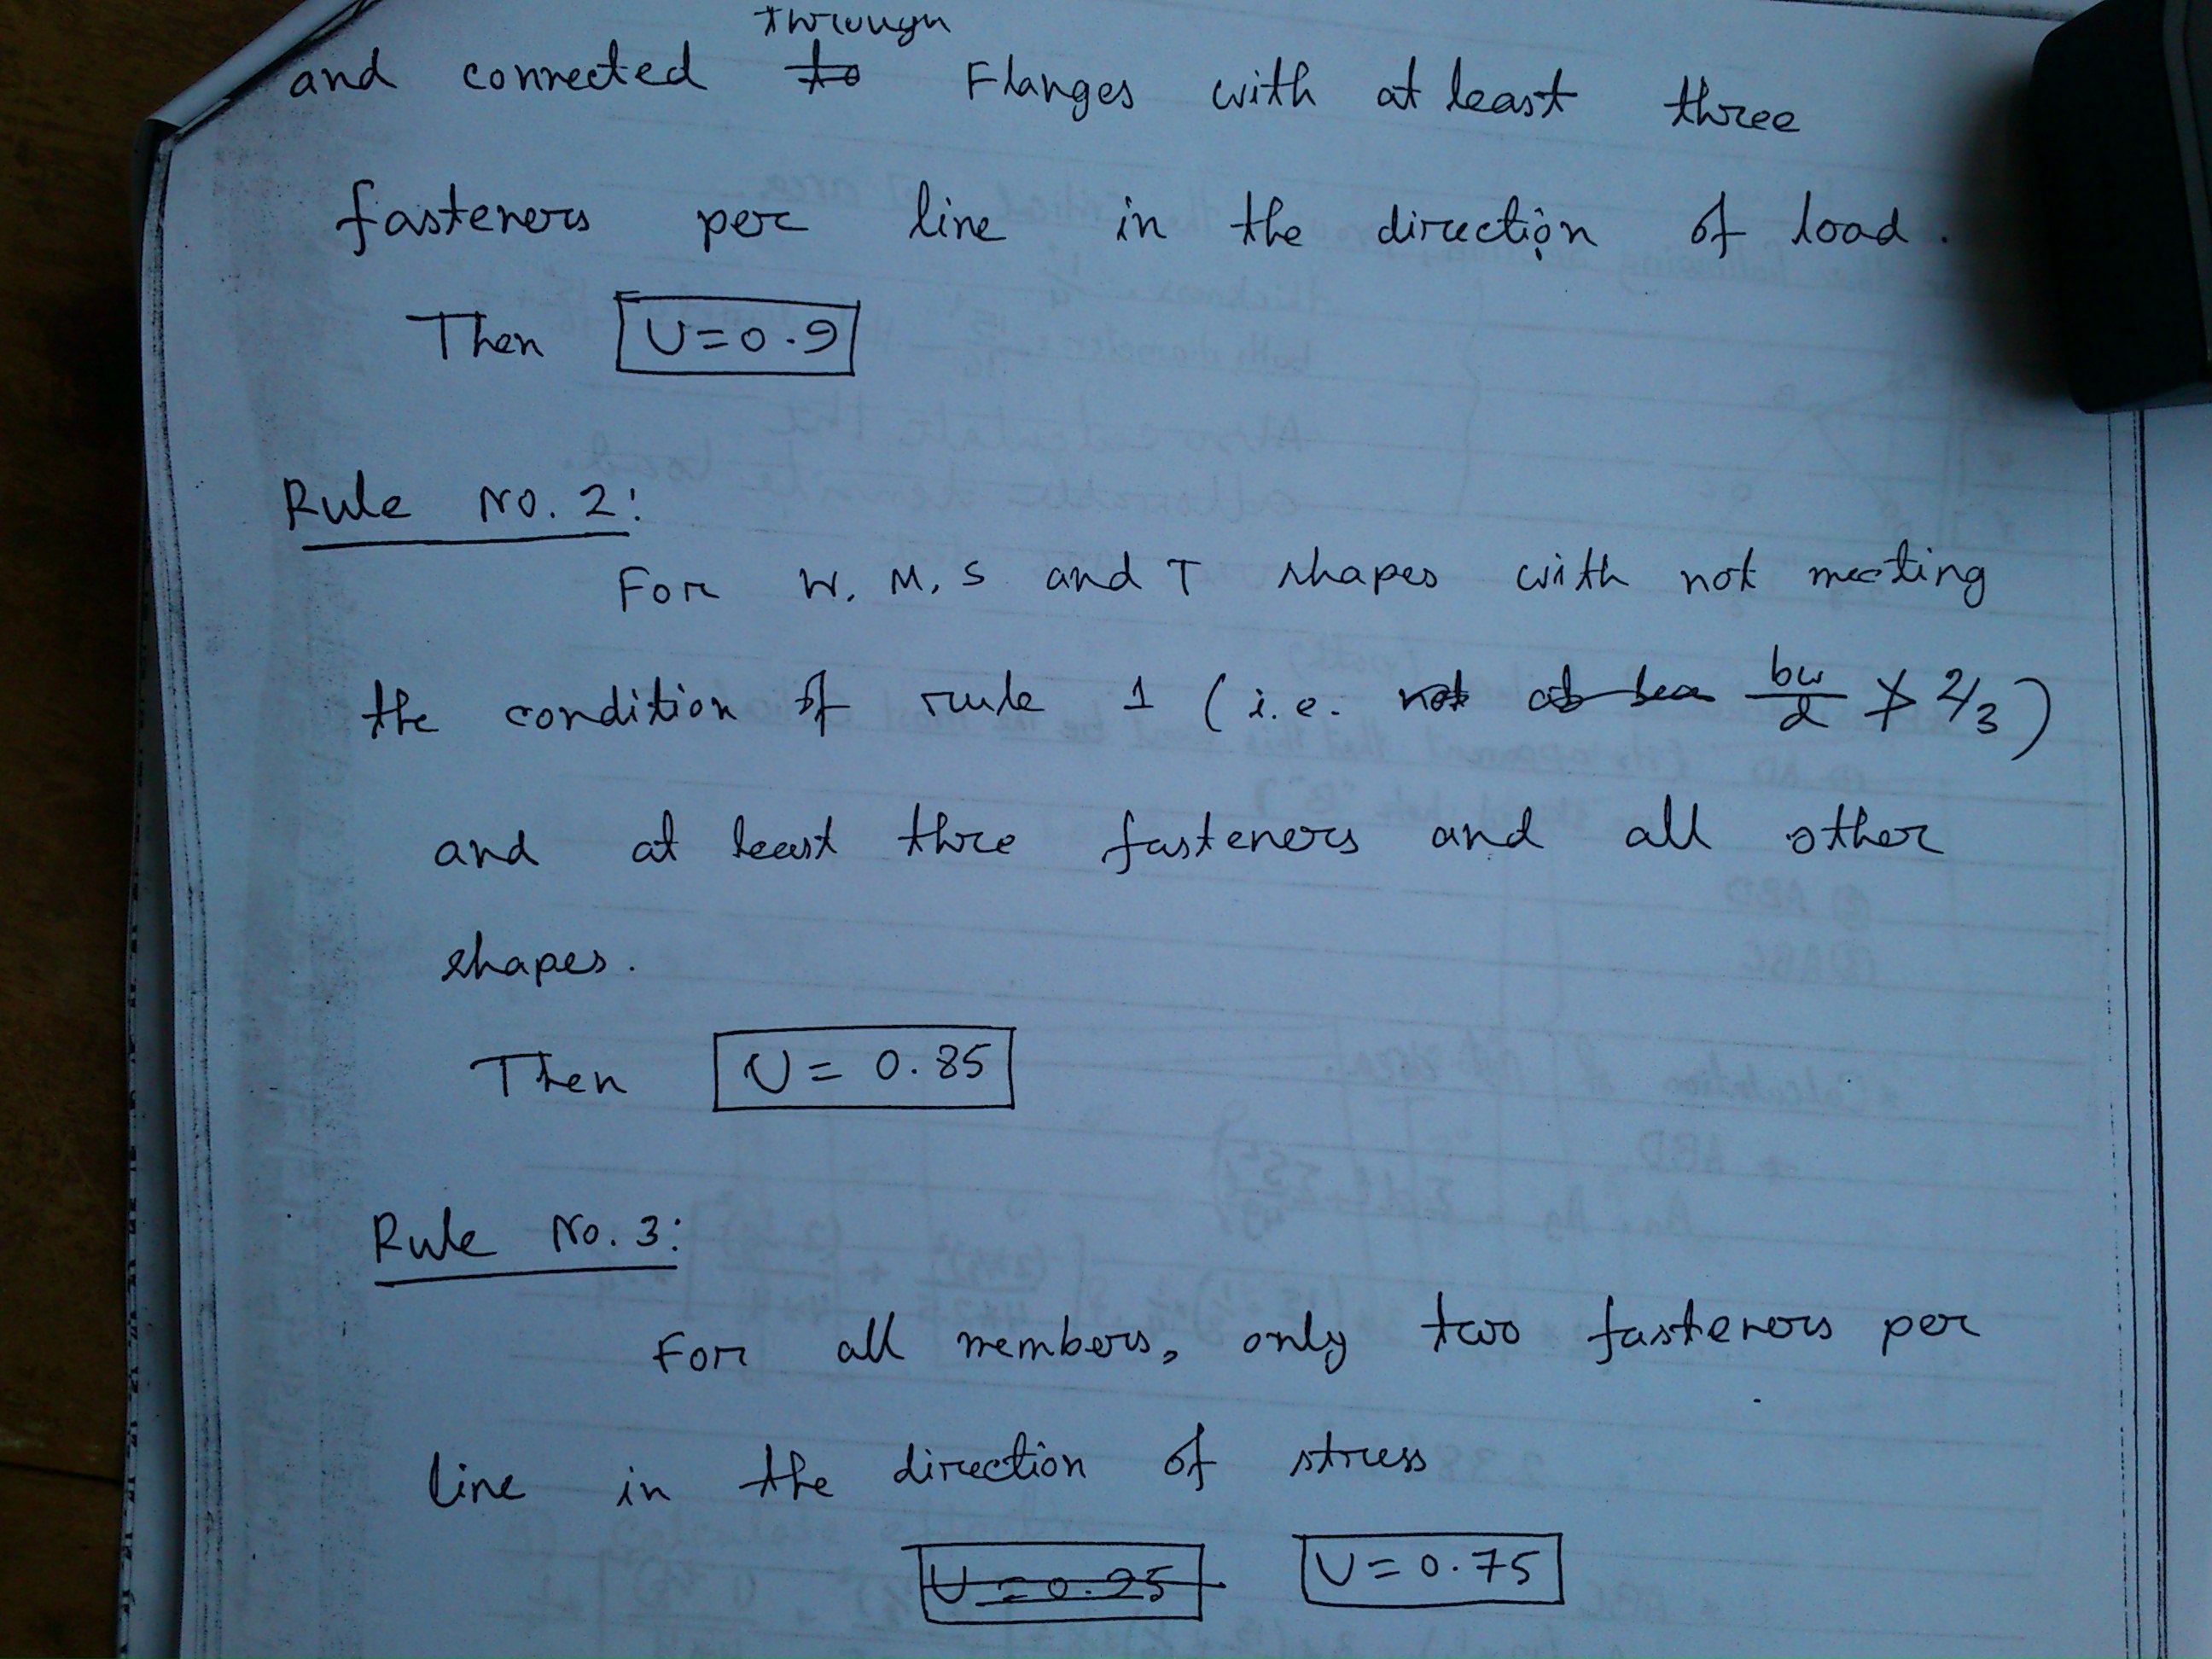 through
and connected to Flanges with at least three
fasteners per line in the direction of load.
Then U=0.9
Rule No. 2:
For W, M, S and T shapes with not meeting
the condition of rule 1 (i.e. not at lea bw/d ≯ 2/3)
and at least three fasteners and all other
shapes.
Then U = 0.85
Rule No. 3:
For all members, only two fasteners per
line in the direction of stress
U = 0.95 U = 0.75